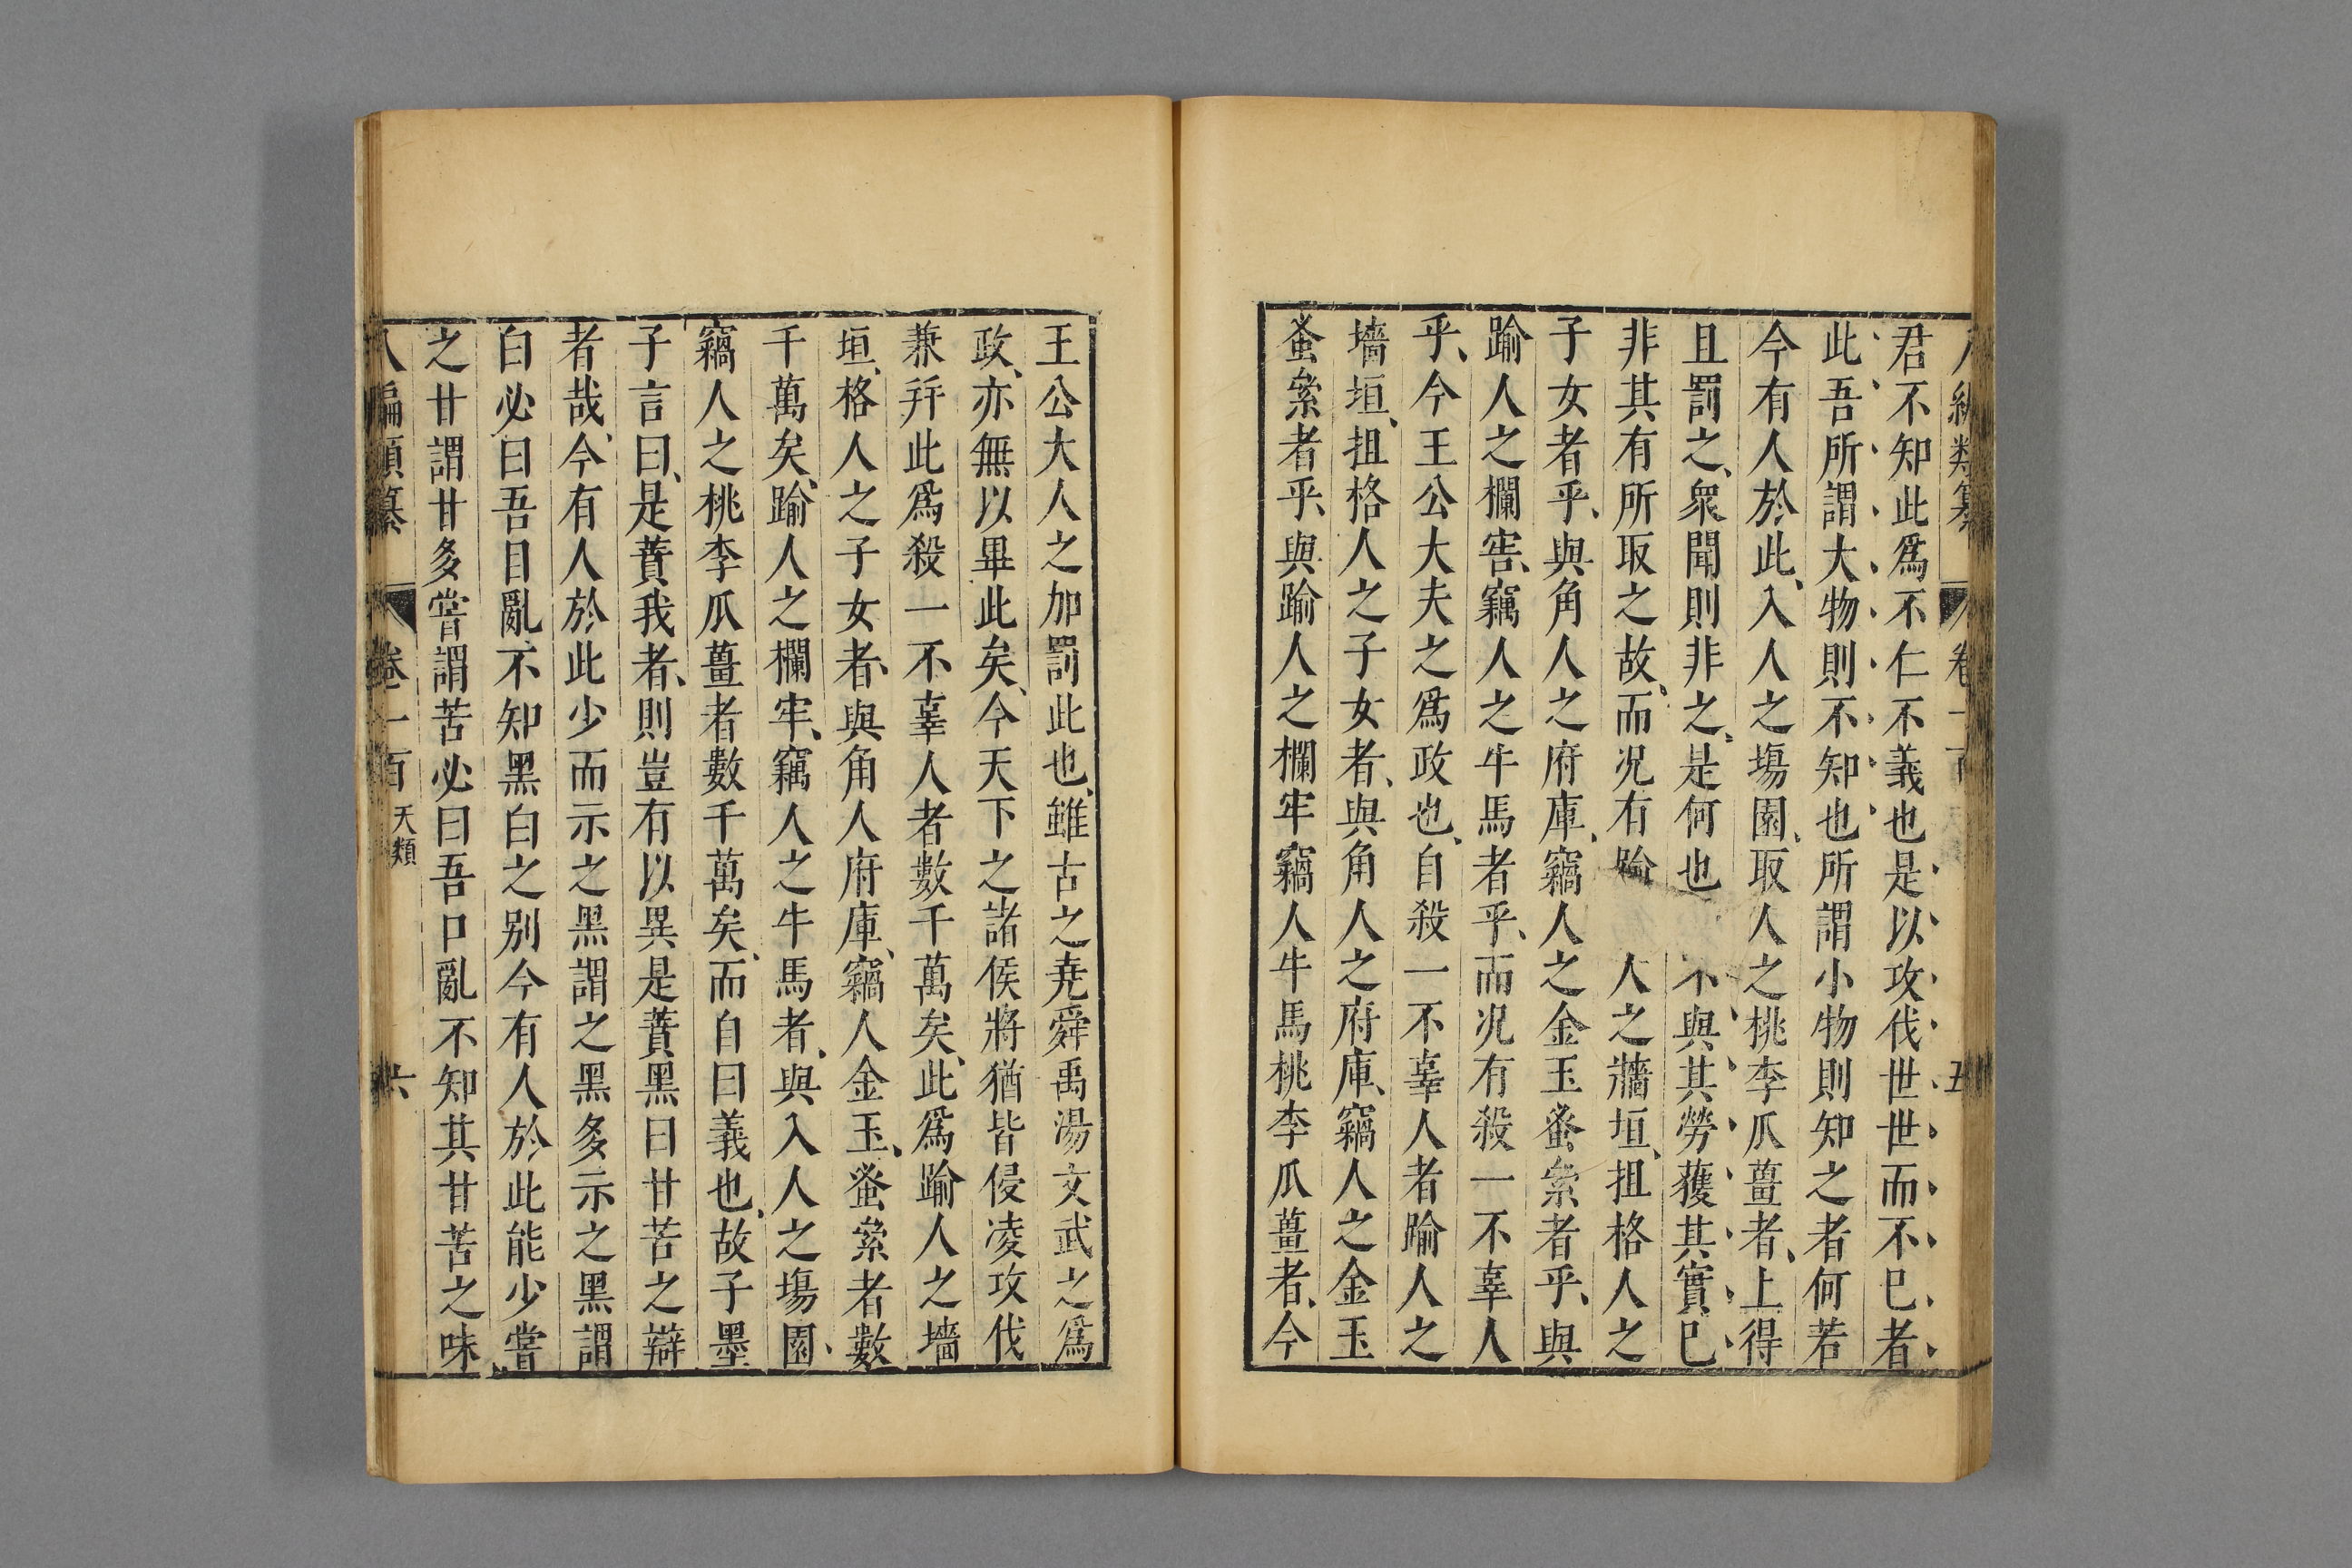 君不知此爲不仁不義也是以攻伐世世而不巳者
此吾所謂大物則不知也所謂小物則知之者何若
今有人於此、入人之塲園、取人之桃李瓜薑者、上得
且罰之、衆聞則非之、是何也 不與其勞獲其實巳
非其有所取之故、而况有踰 人之牆垣、抯格人之
子女者乎、與角人之府庫、竊人之金玉蚤絫者乎、與
踰人之欄窂、竊人之牛馬者乎、而况有殺一不辜人
乎、今王公大夫之爲政也、自殺一不辜人者踰人之
墻垣、抯格人之子女者、與角人之府庫、竊人之金玉
蚤絫者乎、與踰人之欄牢竊人牛馬桃李瓜薑者、今
王公大人之加罰此也、雖古之堯舜禹湯文武之爲
政、亦無以畢此矣、今天下之諸侯將猶皆侵凌攻伐
兼并此爲殺一不辜人者數千萬矣、此爲踰人之墻
垣、格人之子女者、與角人府庫、竊人金玉、蚤絫者數
千萬矣、踰人之欄牢、竊人之牛馬者、與入人之塲園、
竊人之桃李瓜薑者數千萬矣、而自曰義也、故子墨
子言曰、是蕡我者、則豈有以異是蕡黑白甘苦之辯
者哉、今有人於此少而示之黑謂之黑多示之黑謂
白必曰吾目亂不知黑白之别今有人於此能少嘗
之甘謂甘多嘗謂苦必曰吾口亂不知其甘苦之味
八編類纂 卷一百 天類 六